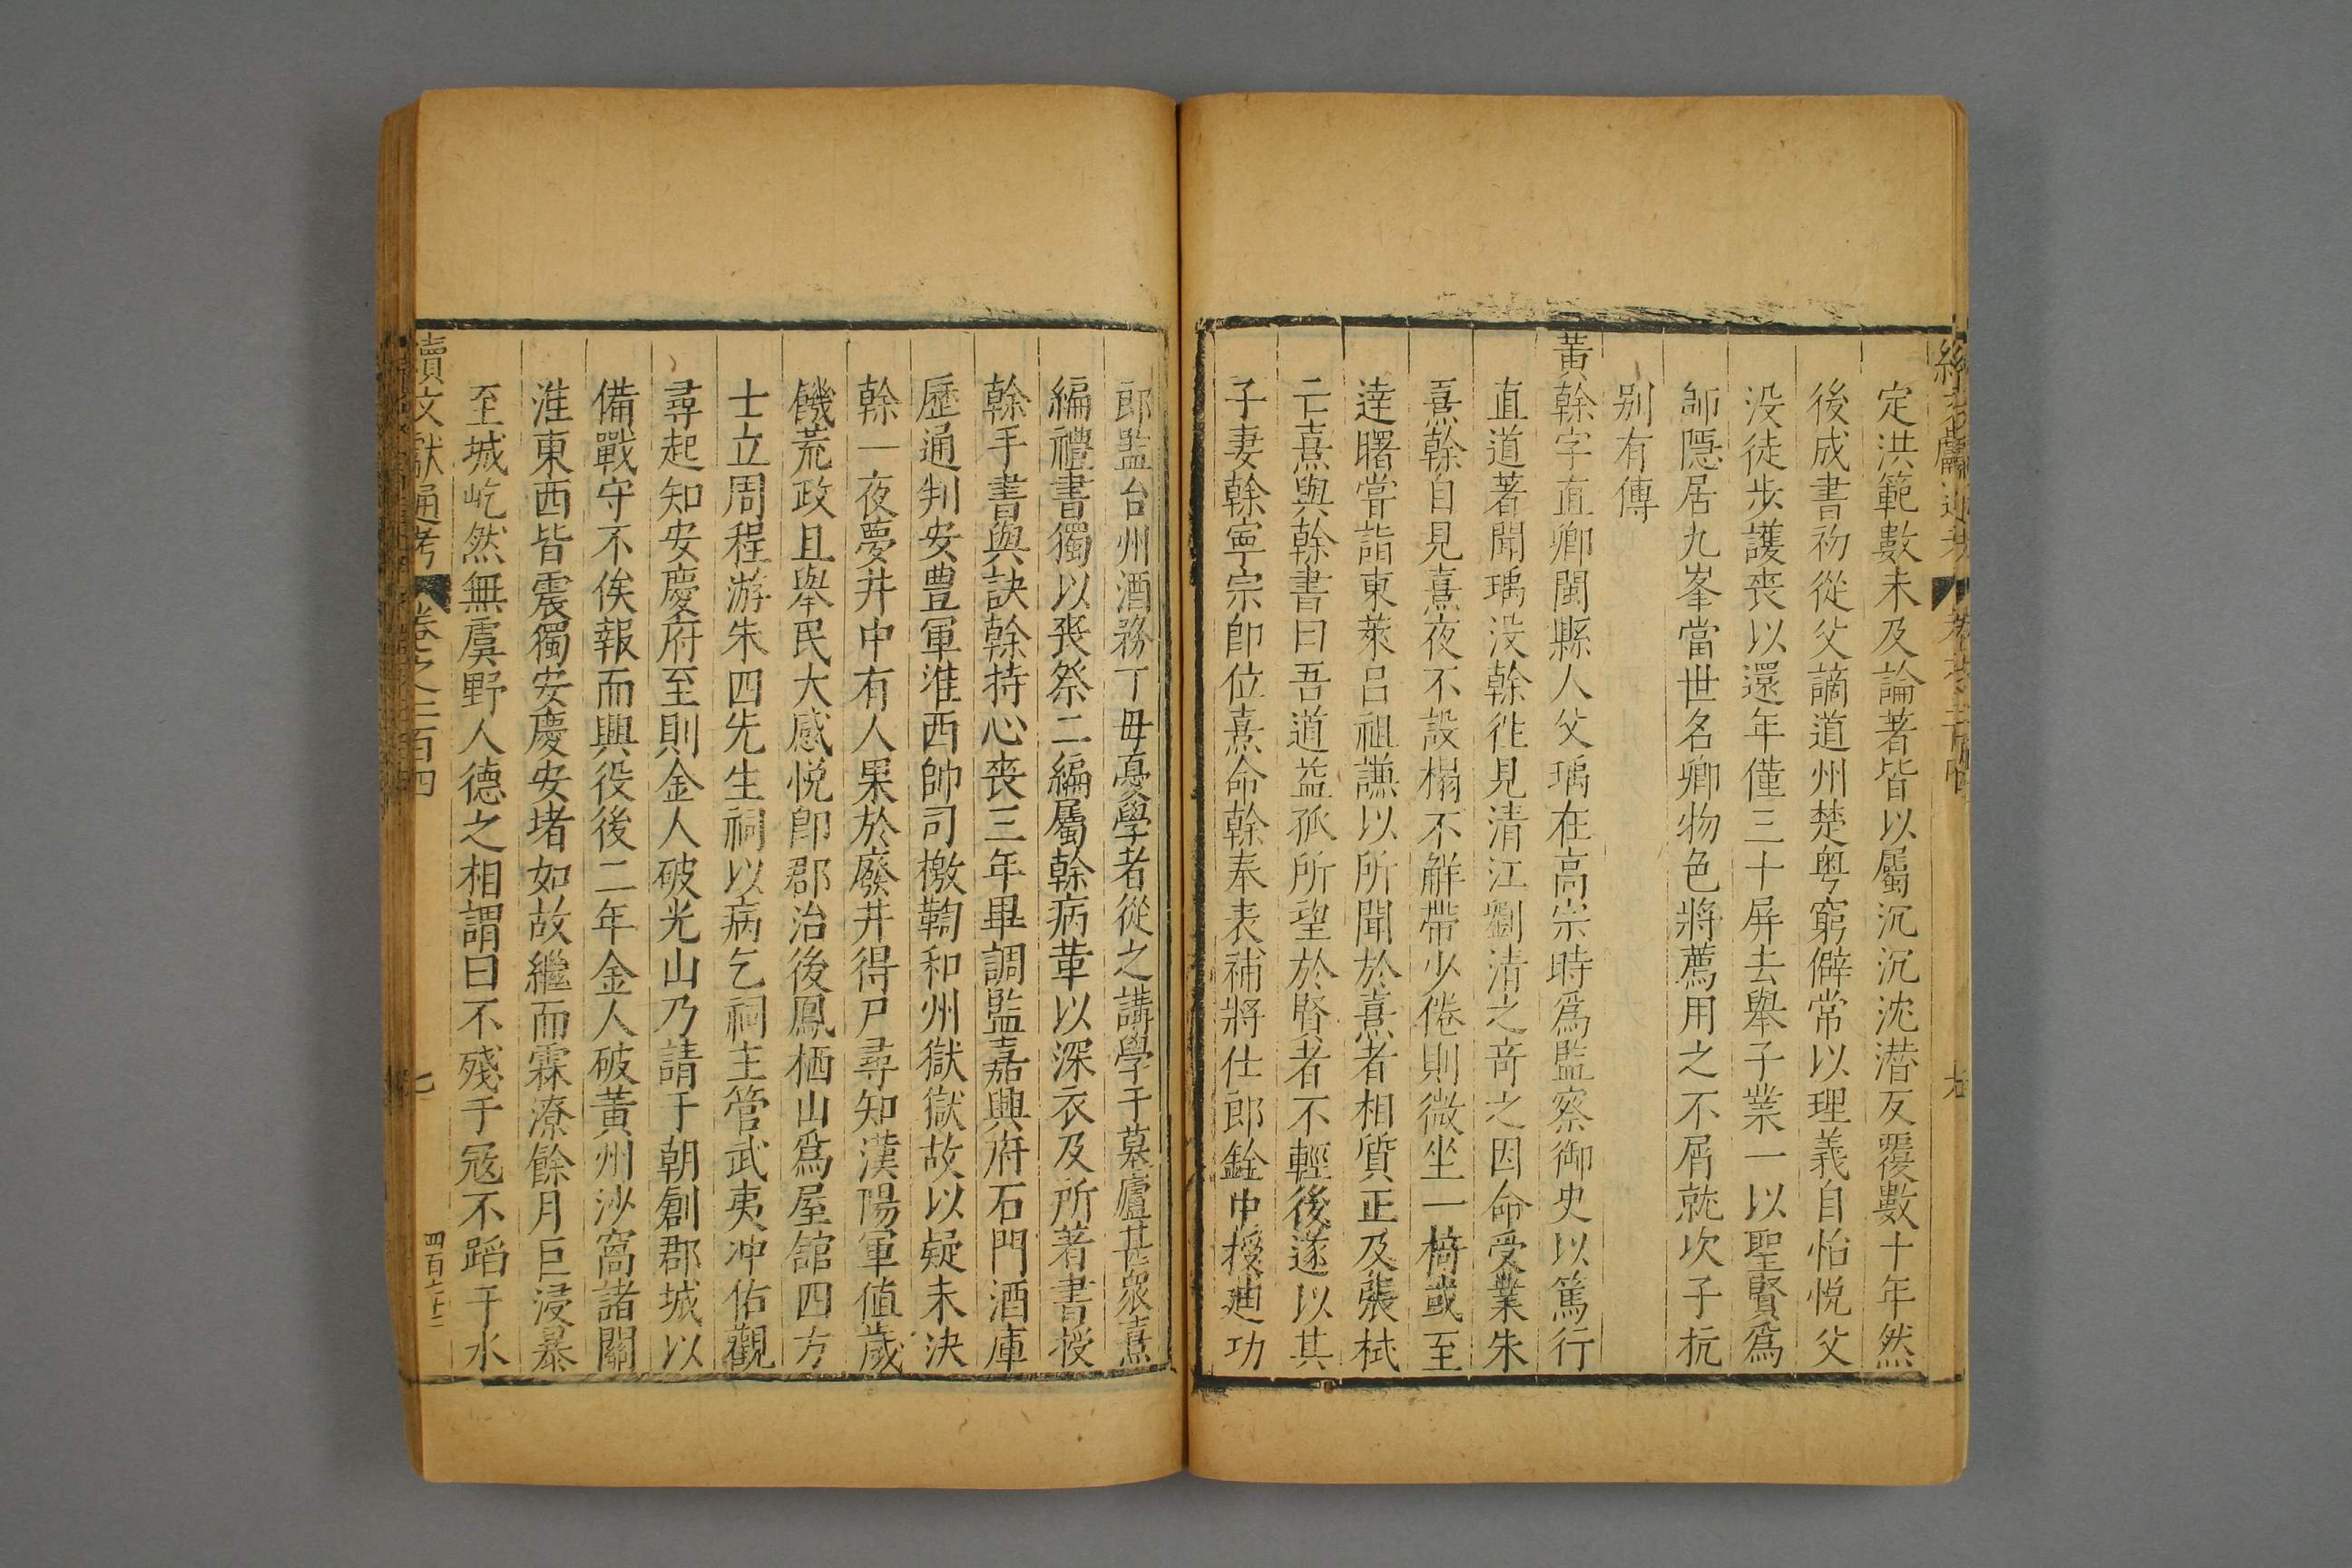 定洪範數未及論著皆以屬沉沉沈潜反覆數十年然
後成書初從父謫道州楚粤窮僻常以理義自怡悅父
没徒步護丧以還年僅三十屏去舉子業一以聖賢爲
師隱居九峯當世名卿物色將薦用之不屑就次子抗
别有傳
黃幹字直卿閩縣人父瑀在高宗時爲監察御史以篤行
直道著聞瑀没幹徃見清江劉清之奇之因命受業朱
熹幹自見熹夜不設榻不觧帶少倦則微坐一椅或至
逹曙嘗詣東萊呂祖謙以所聞於熹者相質正及張栻
亡熹與幹書曰吾道益孤所望於賢者不輕後遂以其
子妻幹寧宗即位熹命幹奉表補將仕郎銓中授廸功
郎監台州酒務丁毋憂學者從之講學于墓廬甚衆熹
編禮書獨以丧祭二編屬幹病革以深衣及所著書授
幹手書與訣幹持心丧三年畢調監嘉興府石門酒庫
歷通判安豊軍淮西帥司檄鞫和州獄獄故以疑未決
幹一夜夢井中有人果於廢井得尸尋知漢陽軍值歲
饑荒政且舉民大感悅即郡治後鳳栖山爲屋舘四方
士立周程游朱四先生祠以病乞祠主管武夷冲佑觀
尋起知安慶府至則金人破光山乃請于朝創郡城以
備戰守不俟報而興役後二年金人破黃州沙窩諸關
淮東西皆震獨安慶安堵如故繼而霖潦餘月巨浸暴
至城屹然無虞野人德之相謂曰不殘于冦不蹈于水
續文獻通考 卷之二百四 七 四百七十二